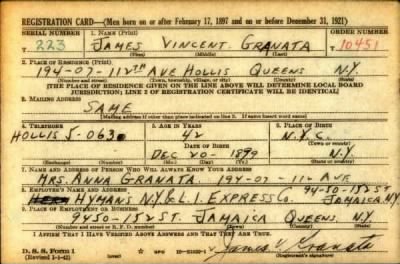 REGISTRATION CARD—(Men born on or after February 17, 1897 and on or before December 31, 1921)
SERIAL NUMBER 1. NAME (Print) ORDER NUMBER
T 223 JAMES VINCENT GRANATA 10451
(First) (Middle) (Last)
2. PLACE OF RESIDENCE (Print)
194-07-112TH AVE HOLLIS QUEENS N.Y.
(Number and street) (Town, township, village, or city) (County) (State)
[THE PLACE OF RESIDENCE GIVEN ON THE LINE ABOVE WILL DETERMINE LOCAL BOARD
JURISDICTION; LINE 2 OF REGISTRATION CERTIFICATE WILL BE IDENTICAL]
3. MAILING ADDRESS
SAME
[Mailing address if other than place indicated on line 2. If same insert word same]
4. TELEPHONE 5. AGE IN YEARS 6. PLACE OF BIRTH
HOLLIS 5-0630 42 N.Y.C.
DATE OF BIRTH (Town or county)
DEC 20-1899 N.Y.
(Exchange) (Number) (Mo.) (Day) (Yr.) (State or country)
7. NAME AND ADDRESS OF PERSON WHO WILL ALWAYS KNOW YOUR ADDRESS
MRS. ANNA GRANATA. 194-07-112 AVE
8. EMPLOYER'S NAME AND ADDRESS 94-50-152 ST
HYMAN'S N.Y. & L.I. EXPRESS CO. JAMAICA N.Y.
9. PLACE OF EMPLOYMENT OR BUSINESS
9450-152 ST. JAMAICA QUEENS. N.Y.
(Number and street or R. F. D. number) (Town) (County) (State)
I AFFIRM THAT I HAVE VERIFIED ABOVE ANSWERS AND THAT THEY ARE TRUE.
D. S. S. Form 1
(Revised 1-1-42) (over) GPO 16-21630-1 James V Granata
(Registrant's signature)